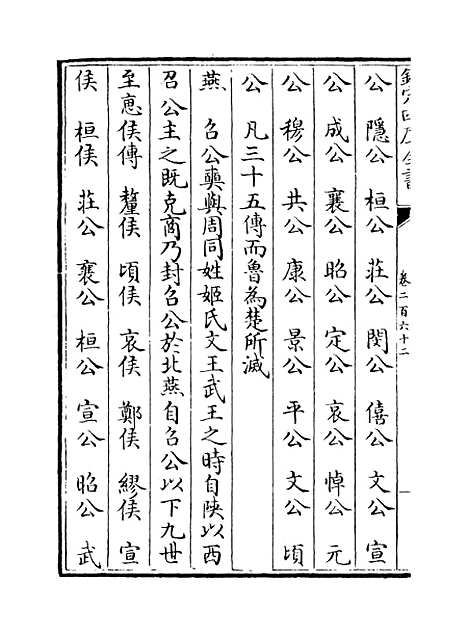 欽定四庫全書
卷二百六十二
公　隱公　桓公　莊公　閔公　僖公　文公　宣
公　成公　襄公　昭公　定公　哀公　悼公　元
公　穆公　共公　康公　景公　平公　文公　頃
公　凡三十五傳而魯為楚所滅
燕　召公奭與周同姓姬氏文王武王之時自陜以西
召公主之既克商乃封召公於北燕自召公以下九世
至惠侯傳　釐侯　頃侯　哀侯　鄭侯　繆侯　宣
侯　桓侯　莊公　襄公　桓公　宣公　昭公　武